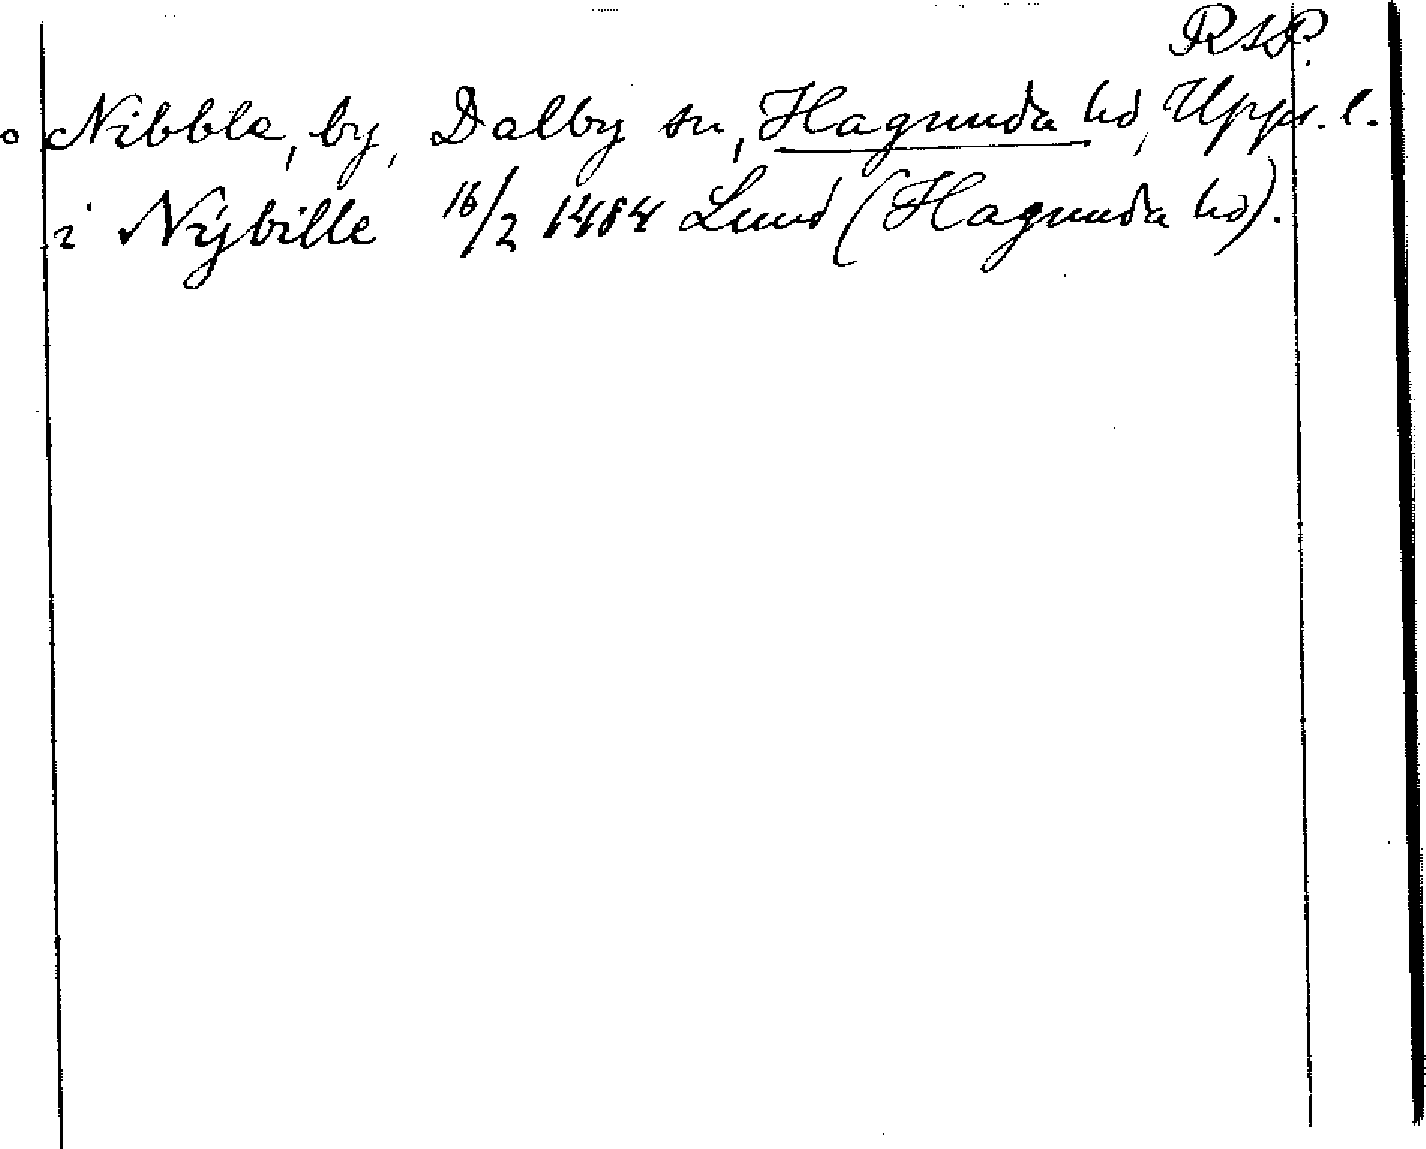 RAP.
o Nibble, by, Dalby sn, Hagunda hd, Upps. l.
i Nÿbille 16/2 1484 Lund (Hagunda hd).